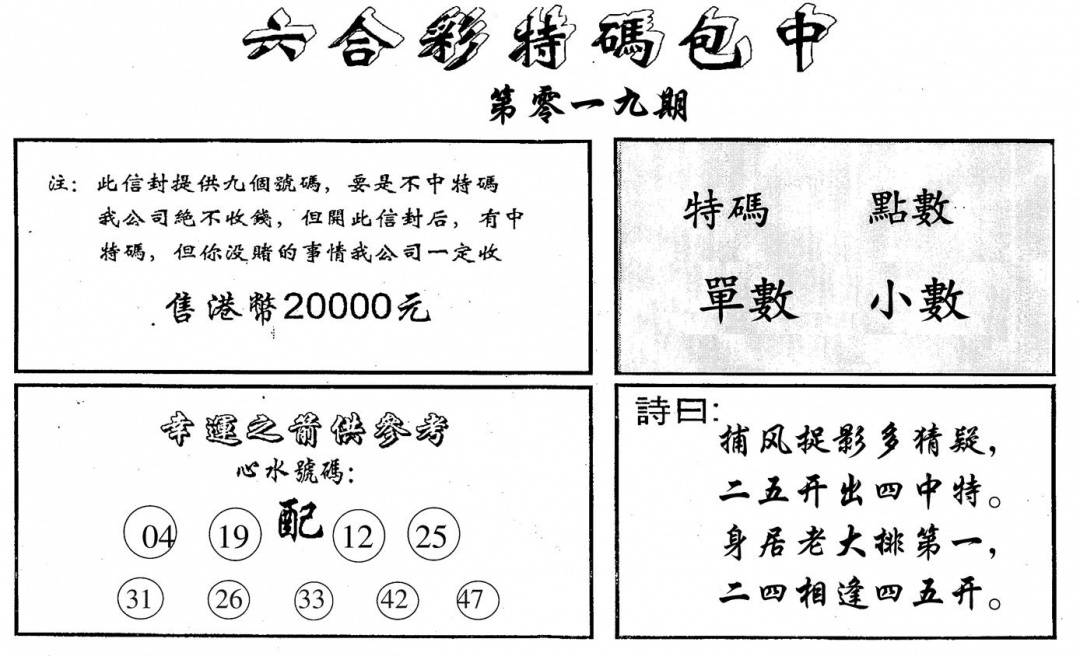 六合彩特碼包中
第零一九期
注：此信封提供九個號碼，要是不中特碼
我公司絕不收錢，但開此信封后，有中
特碼，但你没賭的事情我公司一定收
售港幣20000元
特碼 點數
單數 小數
幸運之箭供參考
心水號碼：
04 19 配 12 25
31 26 33 42 47
詩曰：
捕风捉影多猜疑，
二五开出四中特。
身居老大排第一，
二四相逢四五开。